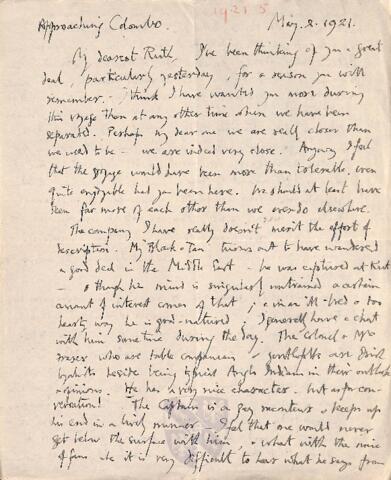 1921 5
Approaching Colombo.
May. 2. 1921.
My dearest Ruth, I've been thinking of you a great
deal, particularly yesterday, for a reason you will
remember. - I think I have wanted you more during
this voyage than at any other time when we have been
separated. Perhaps my dear one we are really closer than
we used to be - we are indeed very close. Anyway I feel
that the voyage would have been more than tolerable, even
quite enjoyable had you been here. We should at least have
seen far more of each other than we ever do elsewhere.
The company I have really doesn't merit the effort of
description. My Black & Tan turns out to have wandered
a good deal in the Middle East - he was captured at Kut
- & though his mind is singularly untrained a certain
amount of interest comes of that; & in an ill-bred & too
hearty way he is good-natured. I generally have a chat
with him sometime during the day. The Colonel & Mrs
Fraser who are table companions - gentlefolks are Irish
besides being typical Anglo Indians in their outlook
& opinions. He has a very nice character - but as for con-
versation! The Captain is a gay & keeps up
his end in a lively manner. I feel that one would never
get below the surface with him, & what with the noise
of fans etc it is very difficult to hear what he says from